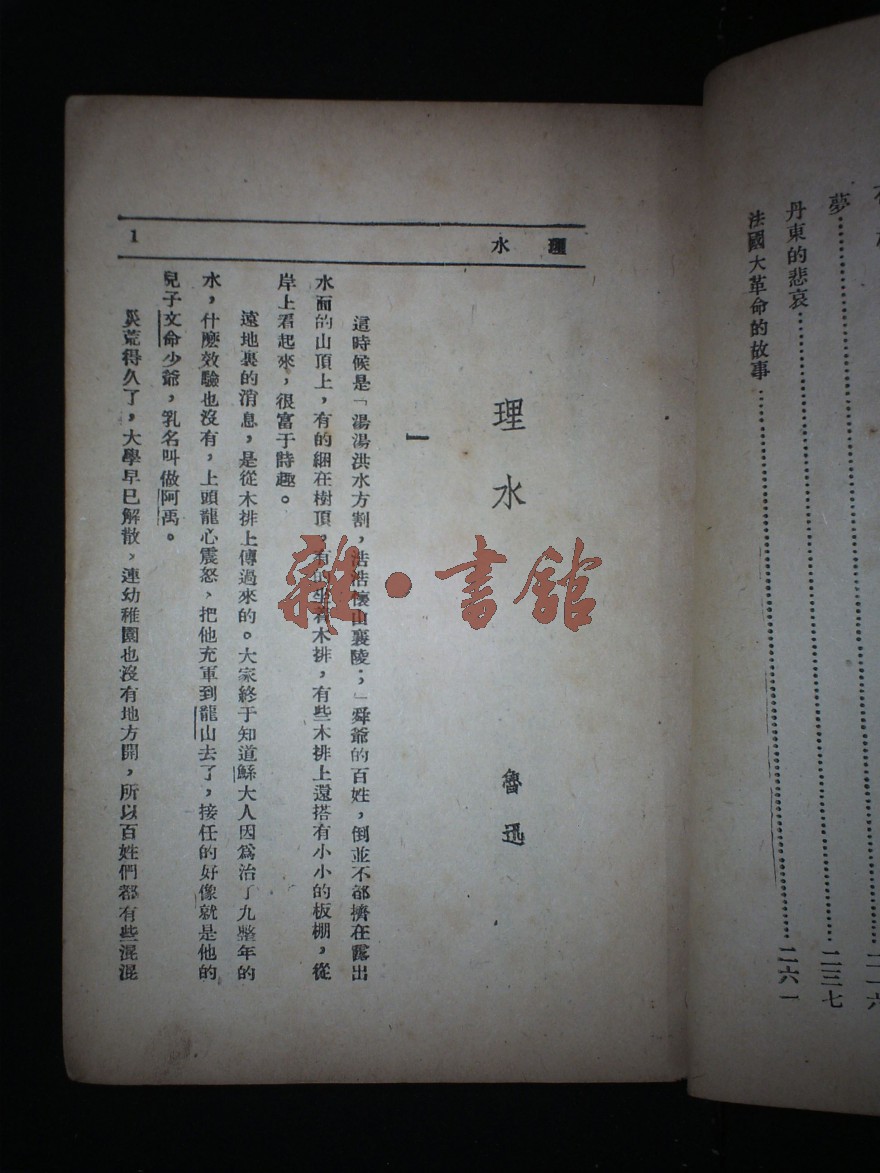 夢……二一六
丹東的悲哀……二三七
法國大革命的故事……二六一
理水
1
理水
魯迅
一
這時候是「湯湯洪水方割，浩浩懷山襄陵；」舜爺的百姓，倒並不都擠在露出
水面的山頂上，有的綑在樹頂，有的坐着木排，有些木排上還搭有小小的板棚，從
岸上看起來，很富于詩趣。
遠地裏的消息，是從木排上傳過來的。大家終于知道鯀大人因爲治了九整年的
水，什麼效驗也沒有，上頭龍心震怒，把他充軍到龍山去了，接任的好像就是他的
兒子文命少爺，乳名叫做阿禹。
災荒得久了，大學早已解散，連幼稚園也沒有地方開，所以百姓們都有些混混
雜·書館